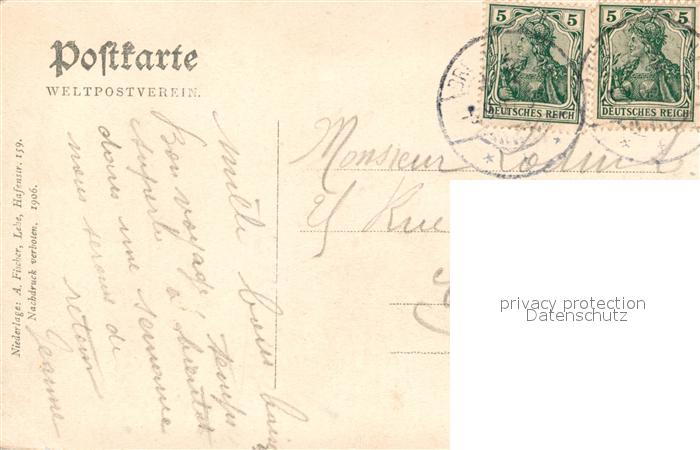 Postkarte
WELTPOSTVEREIN.
5 5
DEUTSCHES REICH
5 5
DEUTSCHES REICH
Monsieur
25 Rue
mille bons baisers
Bon voyage, temps
superbe à bientôt
dans une semaine
nous serons de
retour
Jeanne
Niederlage: A. Fischer, Lehe, Hafenstr. 159.
Nachdruck verboten. 1906.
privacy protection
Datenschutz